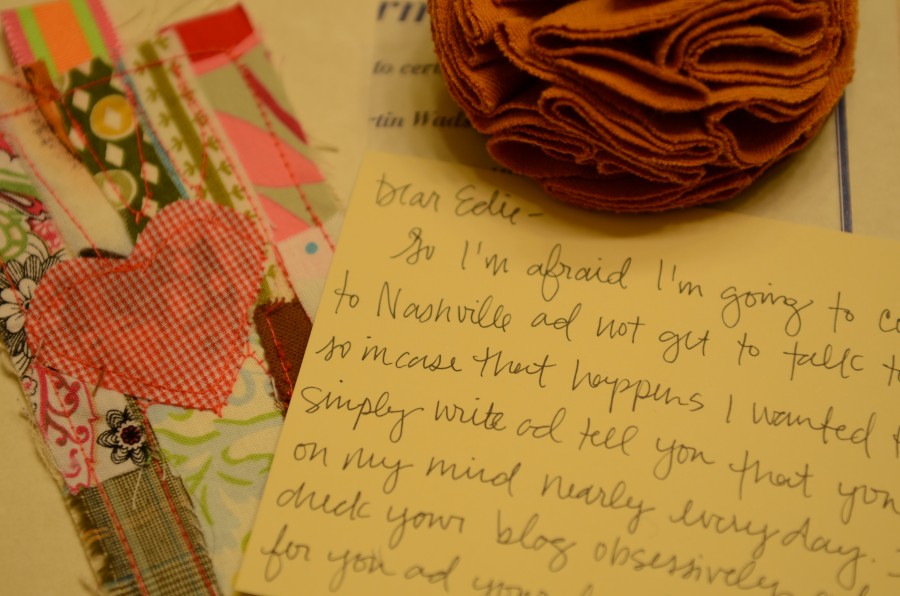 to cer
rtin Wad
Dear Edie-
So I'm afraid I'm going to co
to Nashville ad not get to talk to
so incase that happens I wanted t
simply write ad tell you that you
on my mind nearly every day.
check your blog obsessively
for you ad your